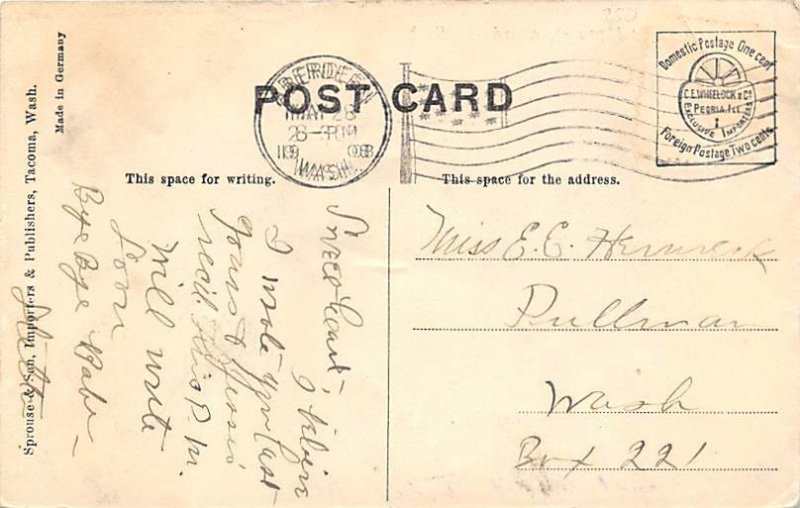 POST CARD
ABERDEEN
MAY 28
WASH.
Domestic Postage One cent
C.E. WHEELOCK & Co
PEORIA, ILL
EXCLUSIVE IMPORTERS
Foreign Postage Two cents
This space for writing.
This space for the address.
Made in Germany
Sprouse & Son, Importers & Publishers, Tacoma, Wash.
Sweetheart,
I
I wrote you last
yours &
recd this P.M.
Will write
soon
Bye Bye Babe
Miss E. E.
Pullman
Wash
Box 221